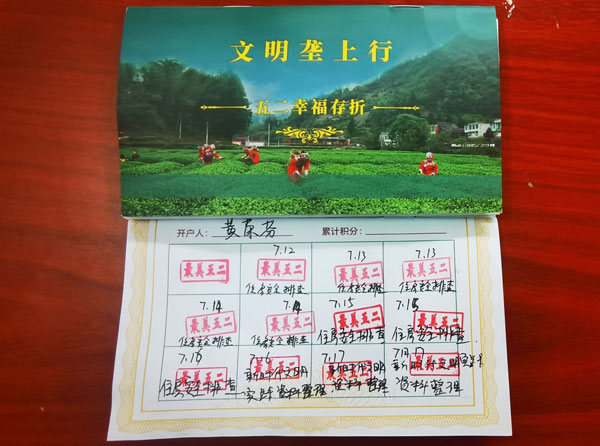 文明垄上行
五二幸福存折
开户人： 黄东芬 累计积分：
最美五二
7.12
最美五二
住房安全排查
7.13
最美五二
住房安全排查
7.13
最美五二
住房安全排查
7.14
最美五二
住房安全排查
7.14
最美五二
住房安全排查
7.15
最美五二
住房安全排查
7.15
最美五二
住房安全排查
7.16
最美五二
住房安全排查
7.16
最美五二
新时代文明
实践 资料整理
7.17
最美五二
新时代文明
资料整理
7月17
最美五二
新时代文明实
资料整理